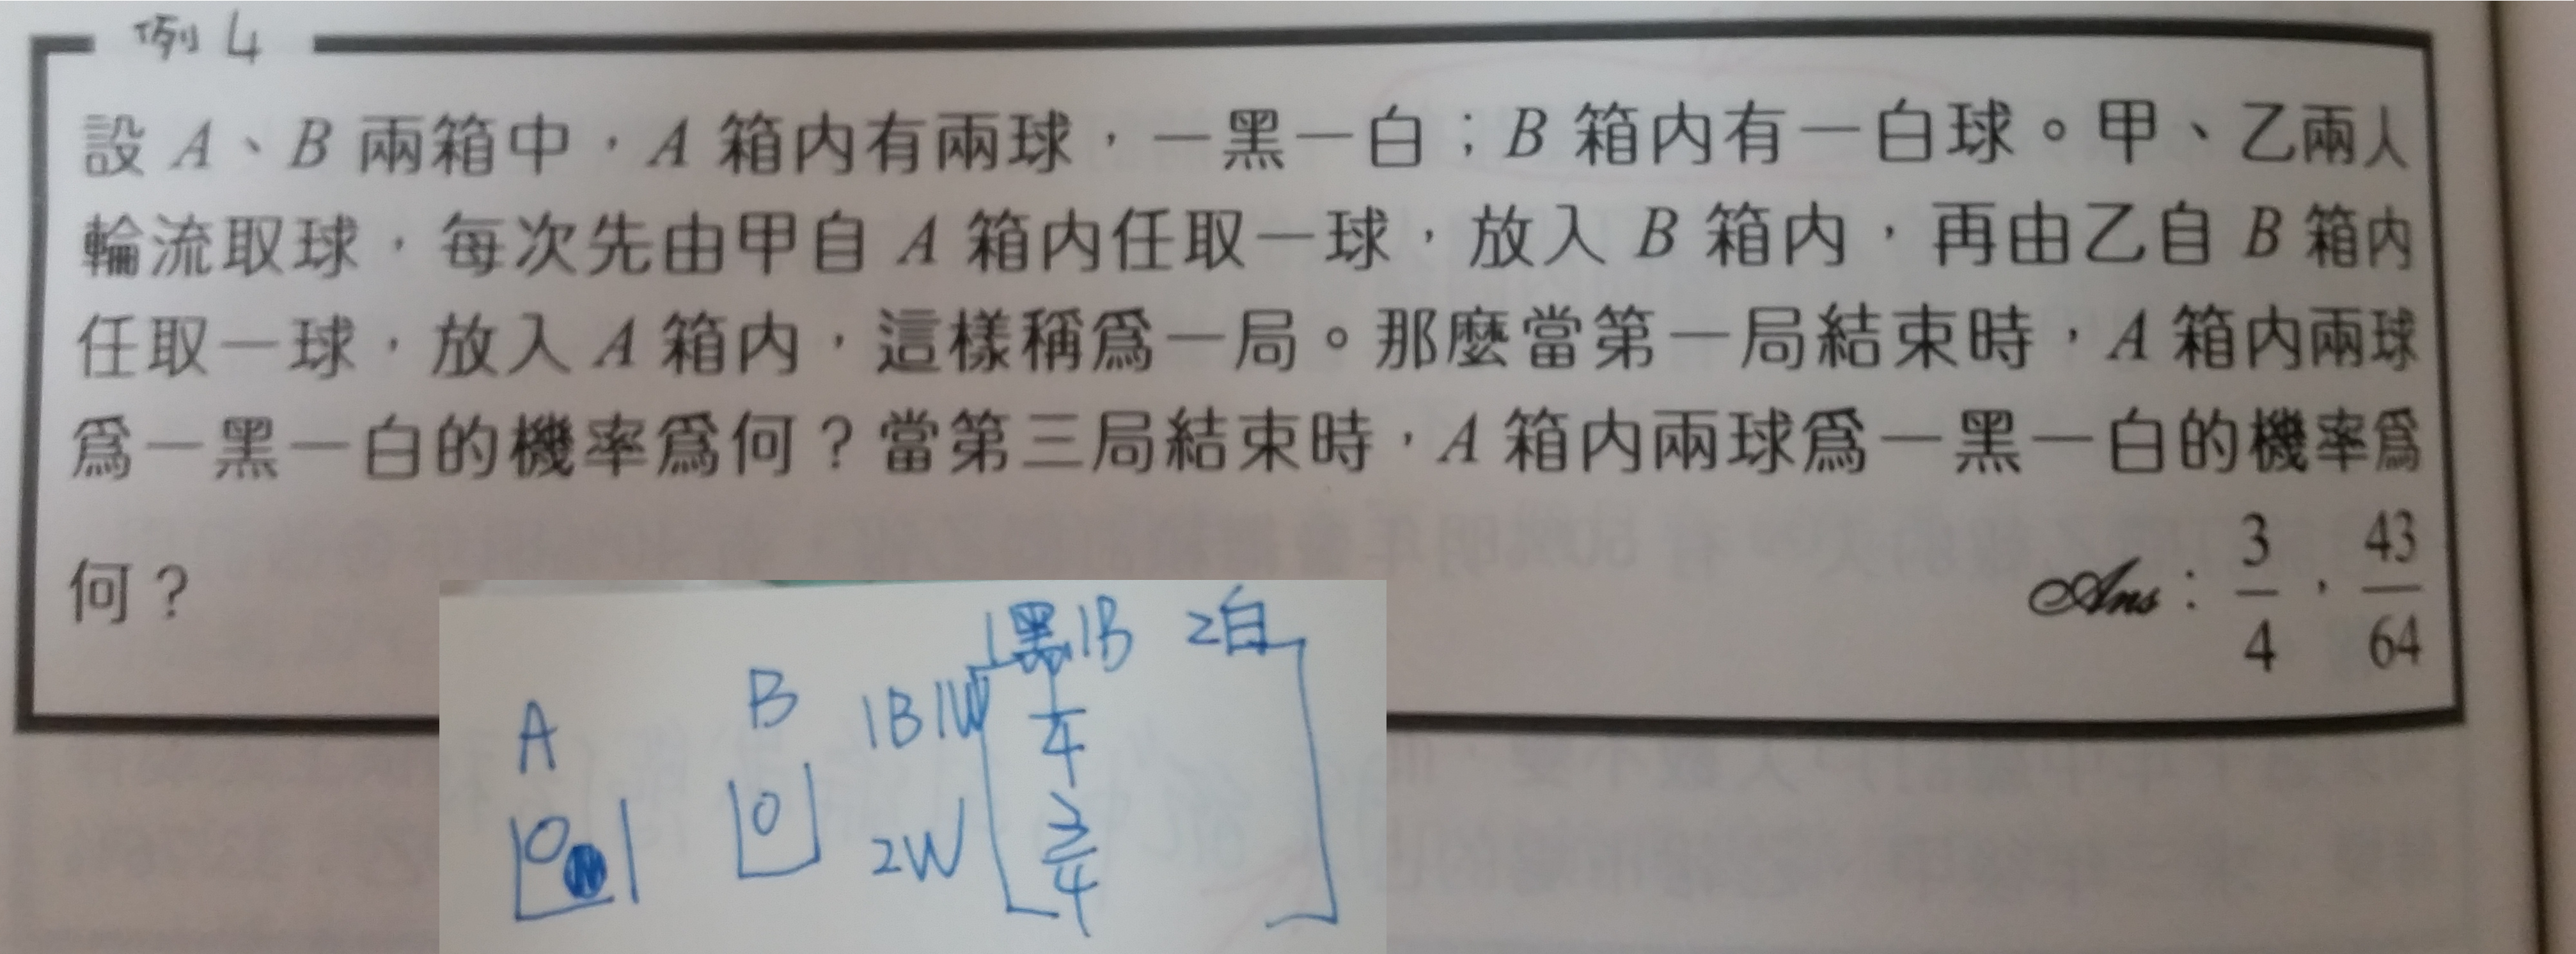 例4
設 A、B 兩箱中，A 箱內有兩球，一黑一白；B 箱內有一白球。甲、乙兩人
輪流取球，每次先由甲自 A 箱內任取一球，放入 B 箱內，再由乙自 B 箱內
任取一球，放入 A 箱內，這樣稱為一局。那麼當第一局結束時，A 箱內兩球
為一黑一白的機率為何？當第三局結束時，A 箱內兩球為一黑一白的機率為
何？
Ans：3/4，43/64
1黑1B 2白
A B 1B1W 1/4
2W 3/4